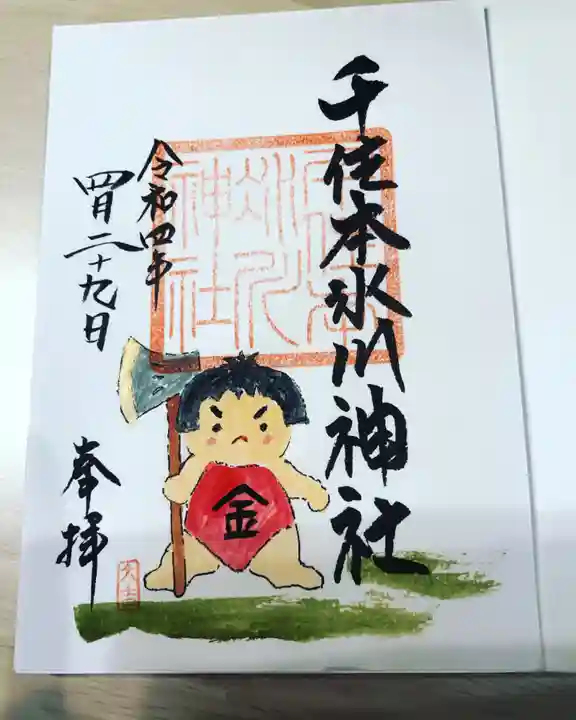 千住本氷川神社
令和四年
四月二十九日
奉拝
金